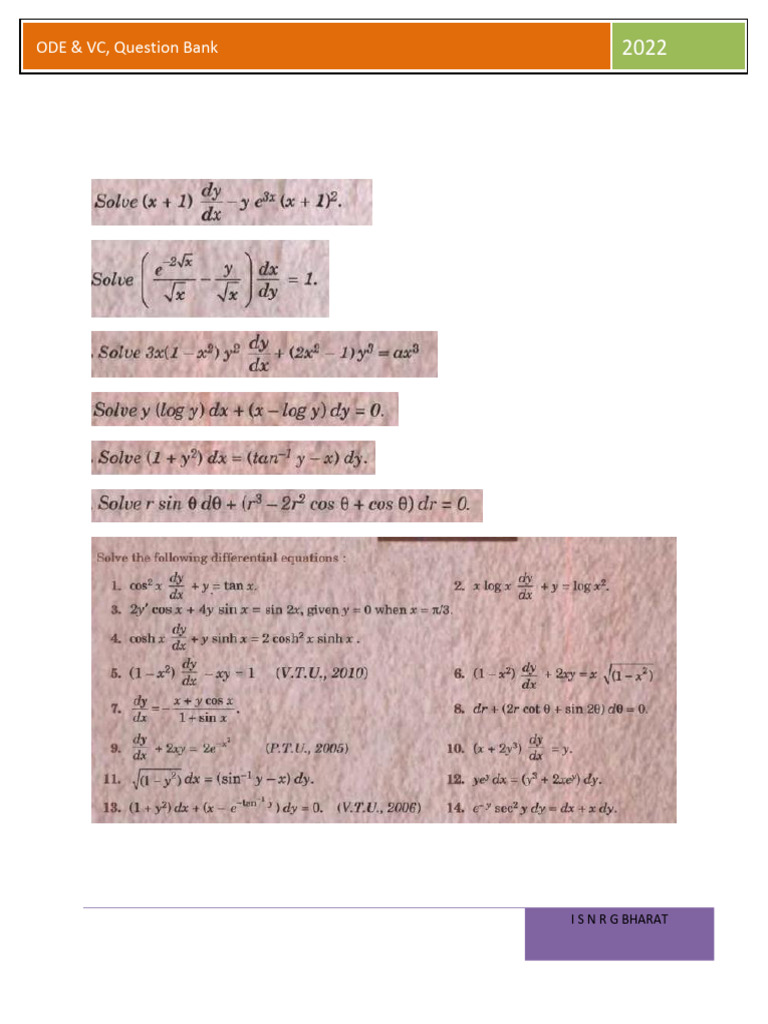 ODE & VC, Question Bank 2022
Solve (x + 1) dy/dx – y e^{3x} (x + 1)^2.
Solve ( e^{-2√x}/√x – y/√x ) dx/dy = 1.
. Solve 3x(1 – x^2) y^2 dy/dx + (2x^2 – 1) y^3 = ax^3
Solve y (log y) dx + (x – log y) dy = 0.
. Solve (1 + y^2) dx = (tan^{-1} y – x) dy.
. Solve r sin θ dθ + (r^3 – 2r^2 cos θ + cos θ) dr = 0.
Solve the following differential equations :
1. cos^2 x dy/dx + y = tan x. 2. x log x dy/dx + y = log x^2.
3. 2y′ cos x + 4y sin x = sin 2x, given y = 0 when x = π/3.
4. cosh x dy/dx + y sinh x = 2 cosh^2 x sinh x .
5. (1 – x^2) dy/dx – xy = 1 (V.T.U., 2010) 6. (1 – x^2) dy/dx + 2xy = x √(1 – x^2)
7. dy/dx = – x + y cos x/1 + sin x. 8. dr + (2r cot θ + sin 2θ) dθ = 0.
9. dy/dx + 2xy = 2e^{-x^2} (P.T.U., 2005) 10. (x + 2y^3) dy/dx = y.
11. √(1 – y^2) dx = (sin^{-1} y – x) dy. 12. ye^y dx = (y^3 + 2xe^y) dy.
13. (1 + y^2) dx + (x – e^{-tan^{-1} y}) dy = 0. (V.T.U., 2006) 14. e^{-y} sec^2 y dy = dx + x dy.
I S N R G BHARAT